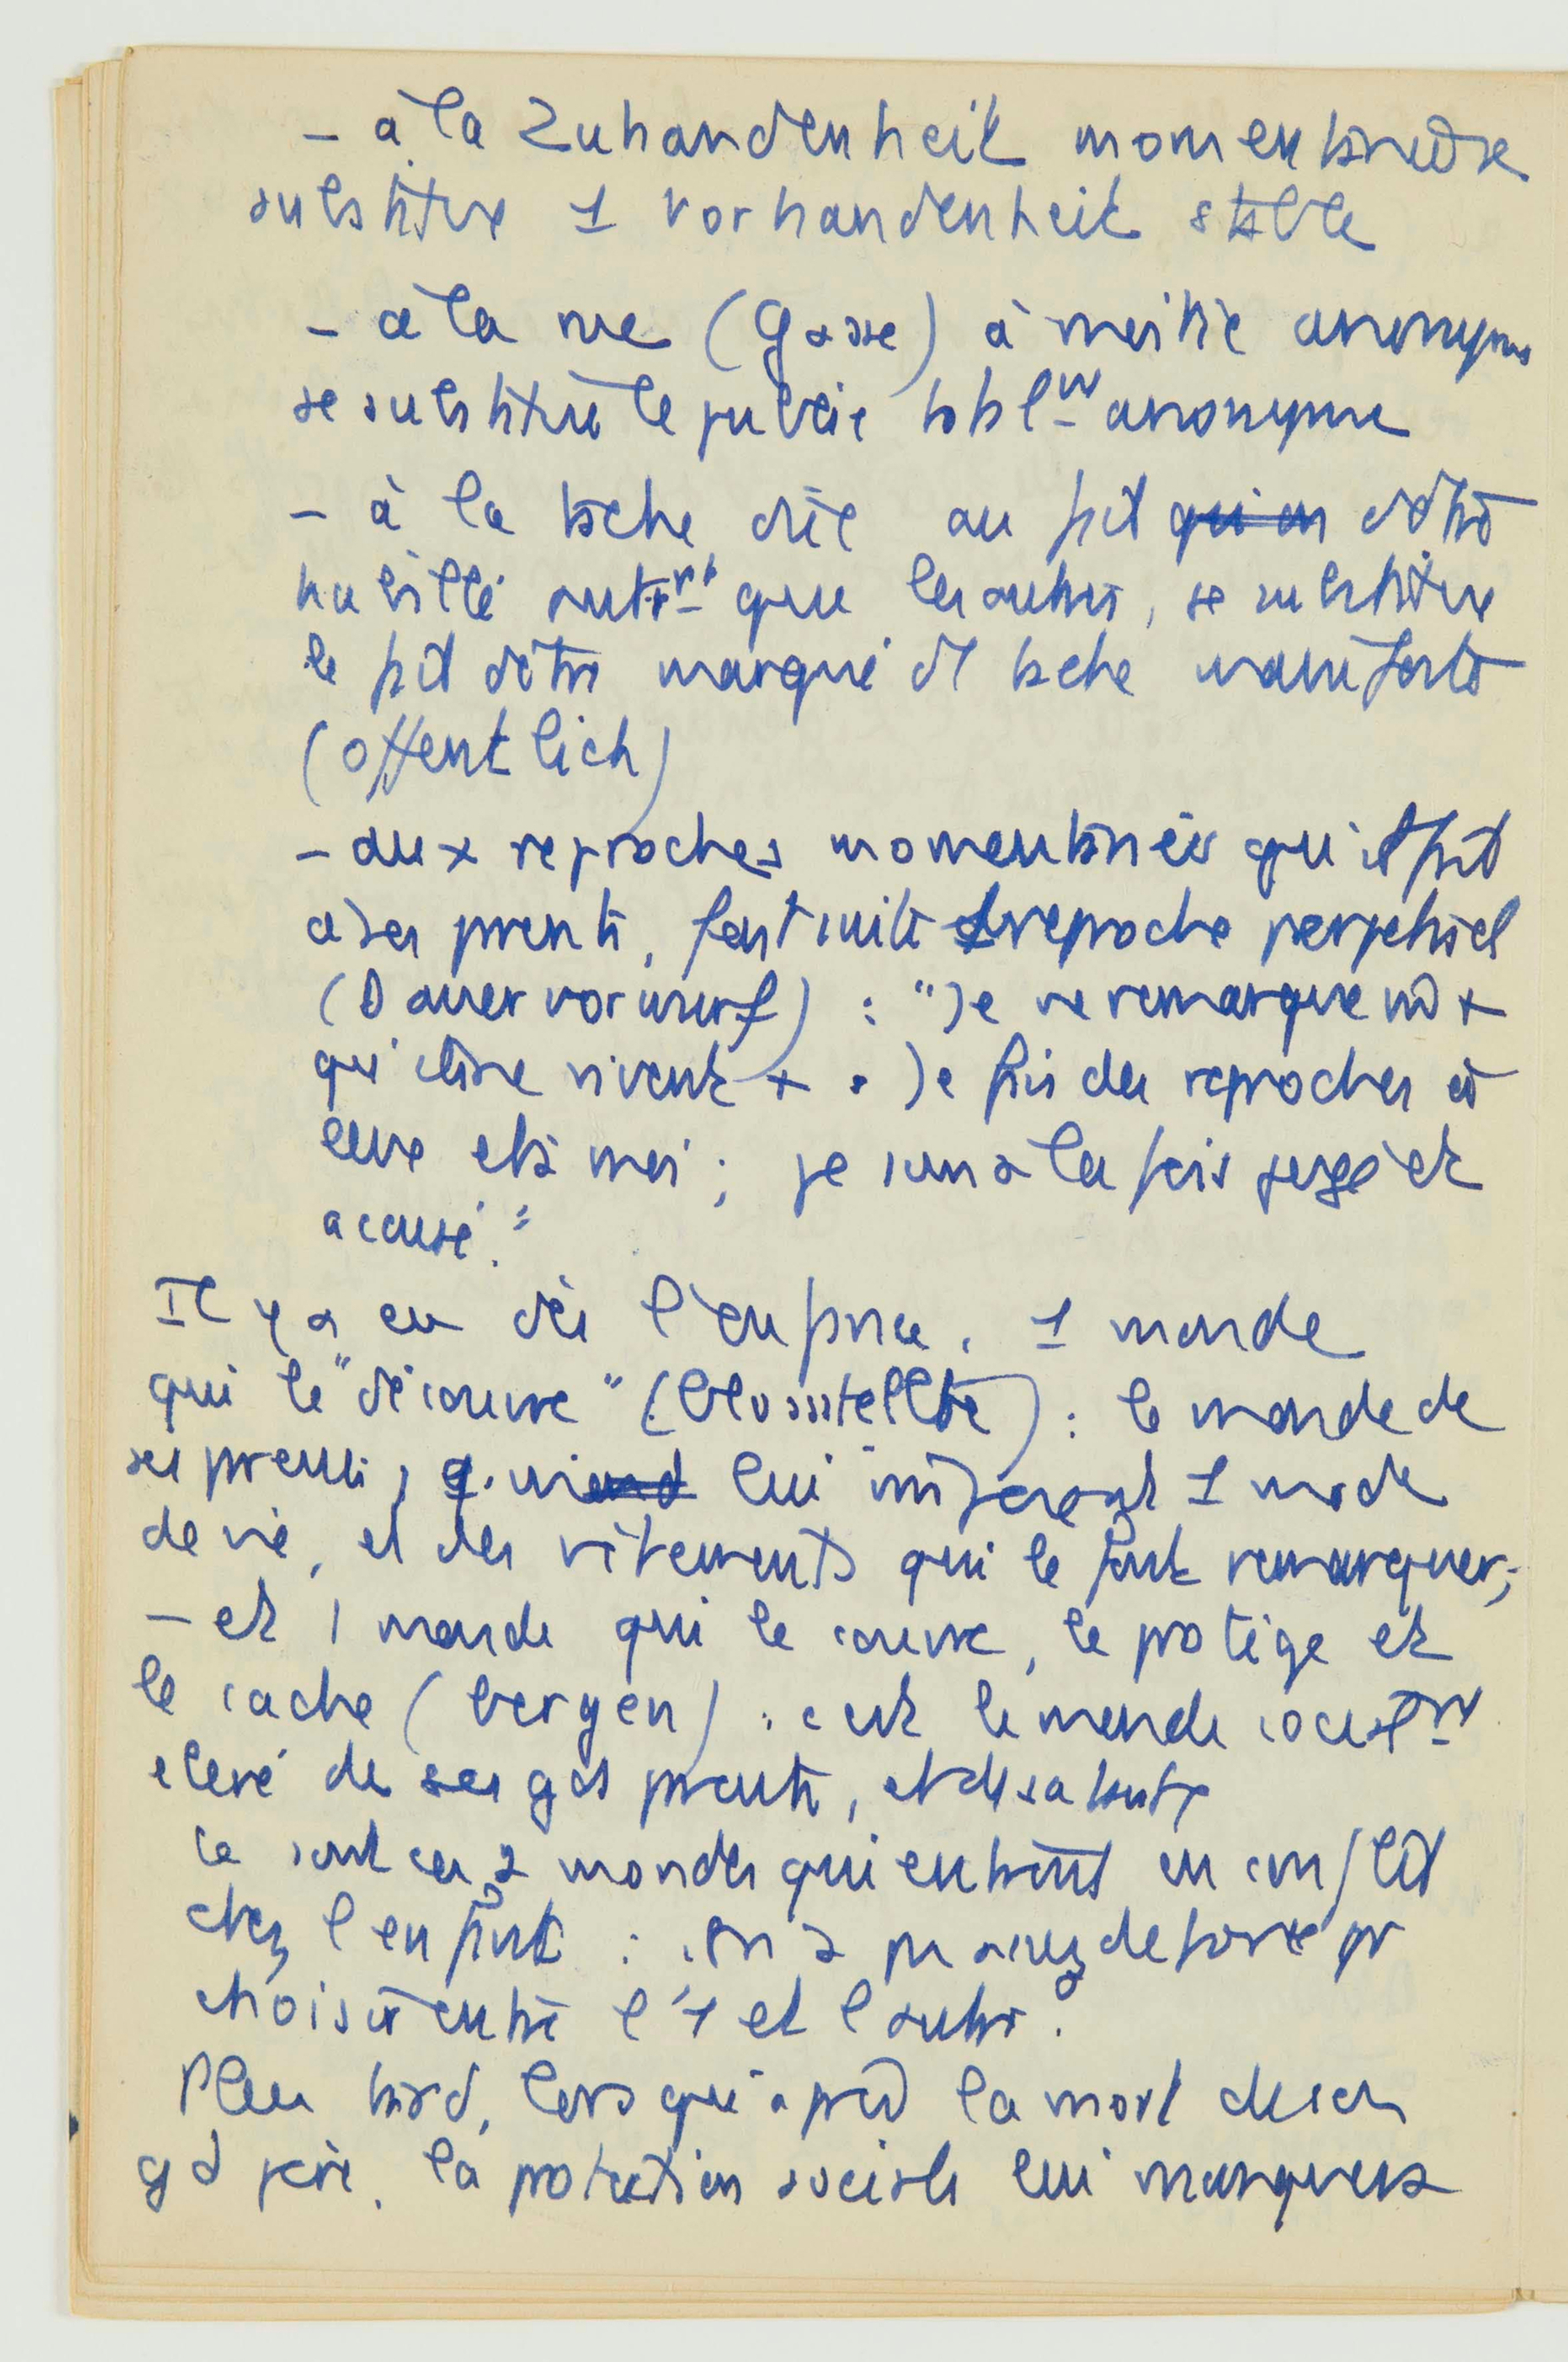 - à la Zuhandenheit momentanée se
substitue 1 Vorhandenheit stable
- à la rue (Gasse) à moitié anonyme
se substitue le public totalmt anonyme
- à la tache due au fait d'être
habillé autrmt que les autres, se substitue
le fait d'être marqué d1 tache manifeste
(öffentlich)
- aux reproches momentanés qu'il fait
à ses parents, font suite 1 reproche perpétuel
(Dauervorwurf) : "Je ne remarque mm +
qu'ils ne vivent +. Je fais des reproches et
eux et à moi ; je suis à la fois juge et
accusé."
Il y a eu dès l'enfance, 1 monde
qui le "découvre" (blossstellte) : le monde de
ses parents, q. lui imposent 1 mode
de vie, et des vêtements qui le font remarquer ;
- et 1 monde qui le couvre, le protège et
le cache (bergen) : c'est le monde socialmt
élevé de ses gds parents, et de sa tante
Ce sont ces 2 mondes qui entrent en conflit
chez l'enfant : il n'a pas assez de force pr
choisir entre l'1 et l'autre.
Plus tard, lorsqu'après la mort de son
gd père, la protection sociale lui manquera